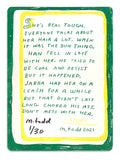 SHE'S REAL TOUGH.
EVERYONE TALKS ABOUT
HER HAIR A LOT. WHEN
IT WAS THE BUN THING,
HAN FELL IN LOVE
WITH HER. HE TRIED TO
BE COOL AND RESIST
BUT IT HAPPENED.
JABBA HAD HER ON A
LEASH FOR A WHILE
BUT THAT DIDN'T LAST
LONG. CHOKED HIS ASS
DON'T MESS WITH HER.
m.todd
1/30
m.todd 2021